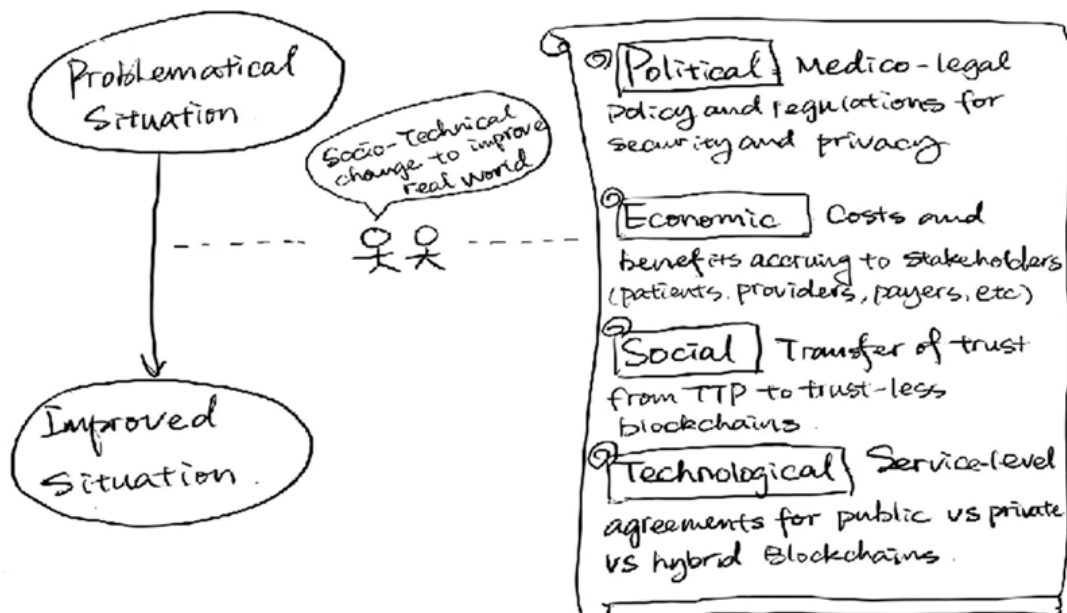 Problematical
Situation
Socio-Technical
change to improve
real world
Improved
Situation.
Political: Medico-legal
policy and regulations for
security and privacy
Economic Costs and
benefits accruing to stakeholders
(patients, providers, payers, etc)
Social Transfer of trust
from TTP to trust-less
blockchains.
Technological Service-level
agreements for public vs private
vs hybrid Blockchains.